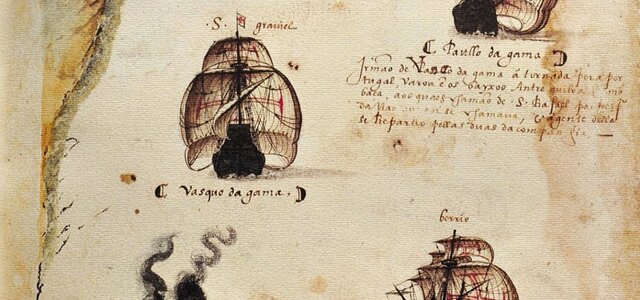 .S. graviel
Paullo da gama
Irmão de Vasco da gama á tornada pera por
tugal varou ẽ os bayxos Antre quiloa mõ
baça, aos quaes chamão de .S. Rafael por
da Não chamava, E agente della
se Repartio pellas duas da companhia
Vasquo da gama.
berrio